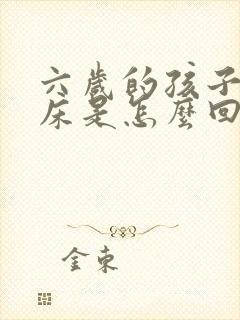 六歲的孩子
床是怎麼回
金東